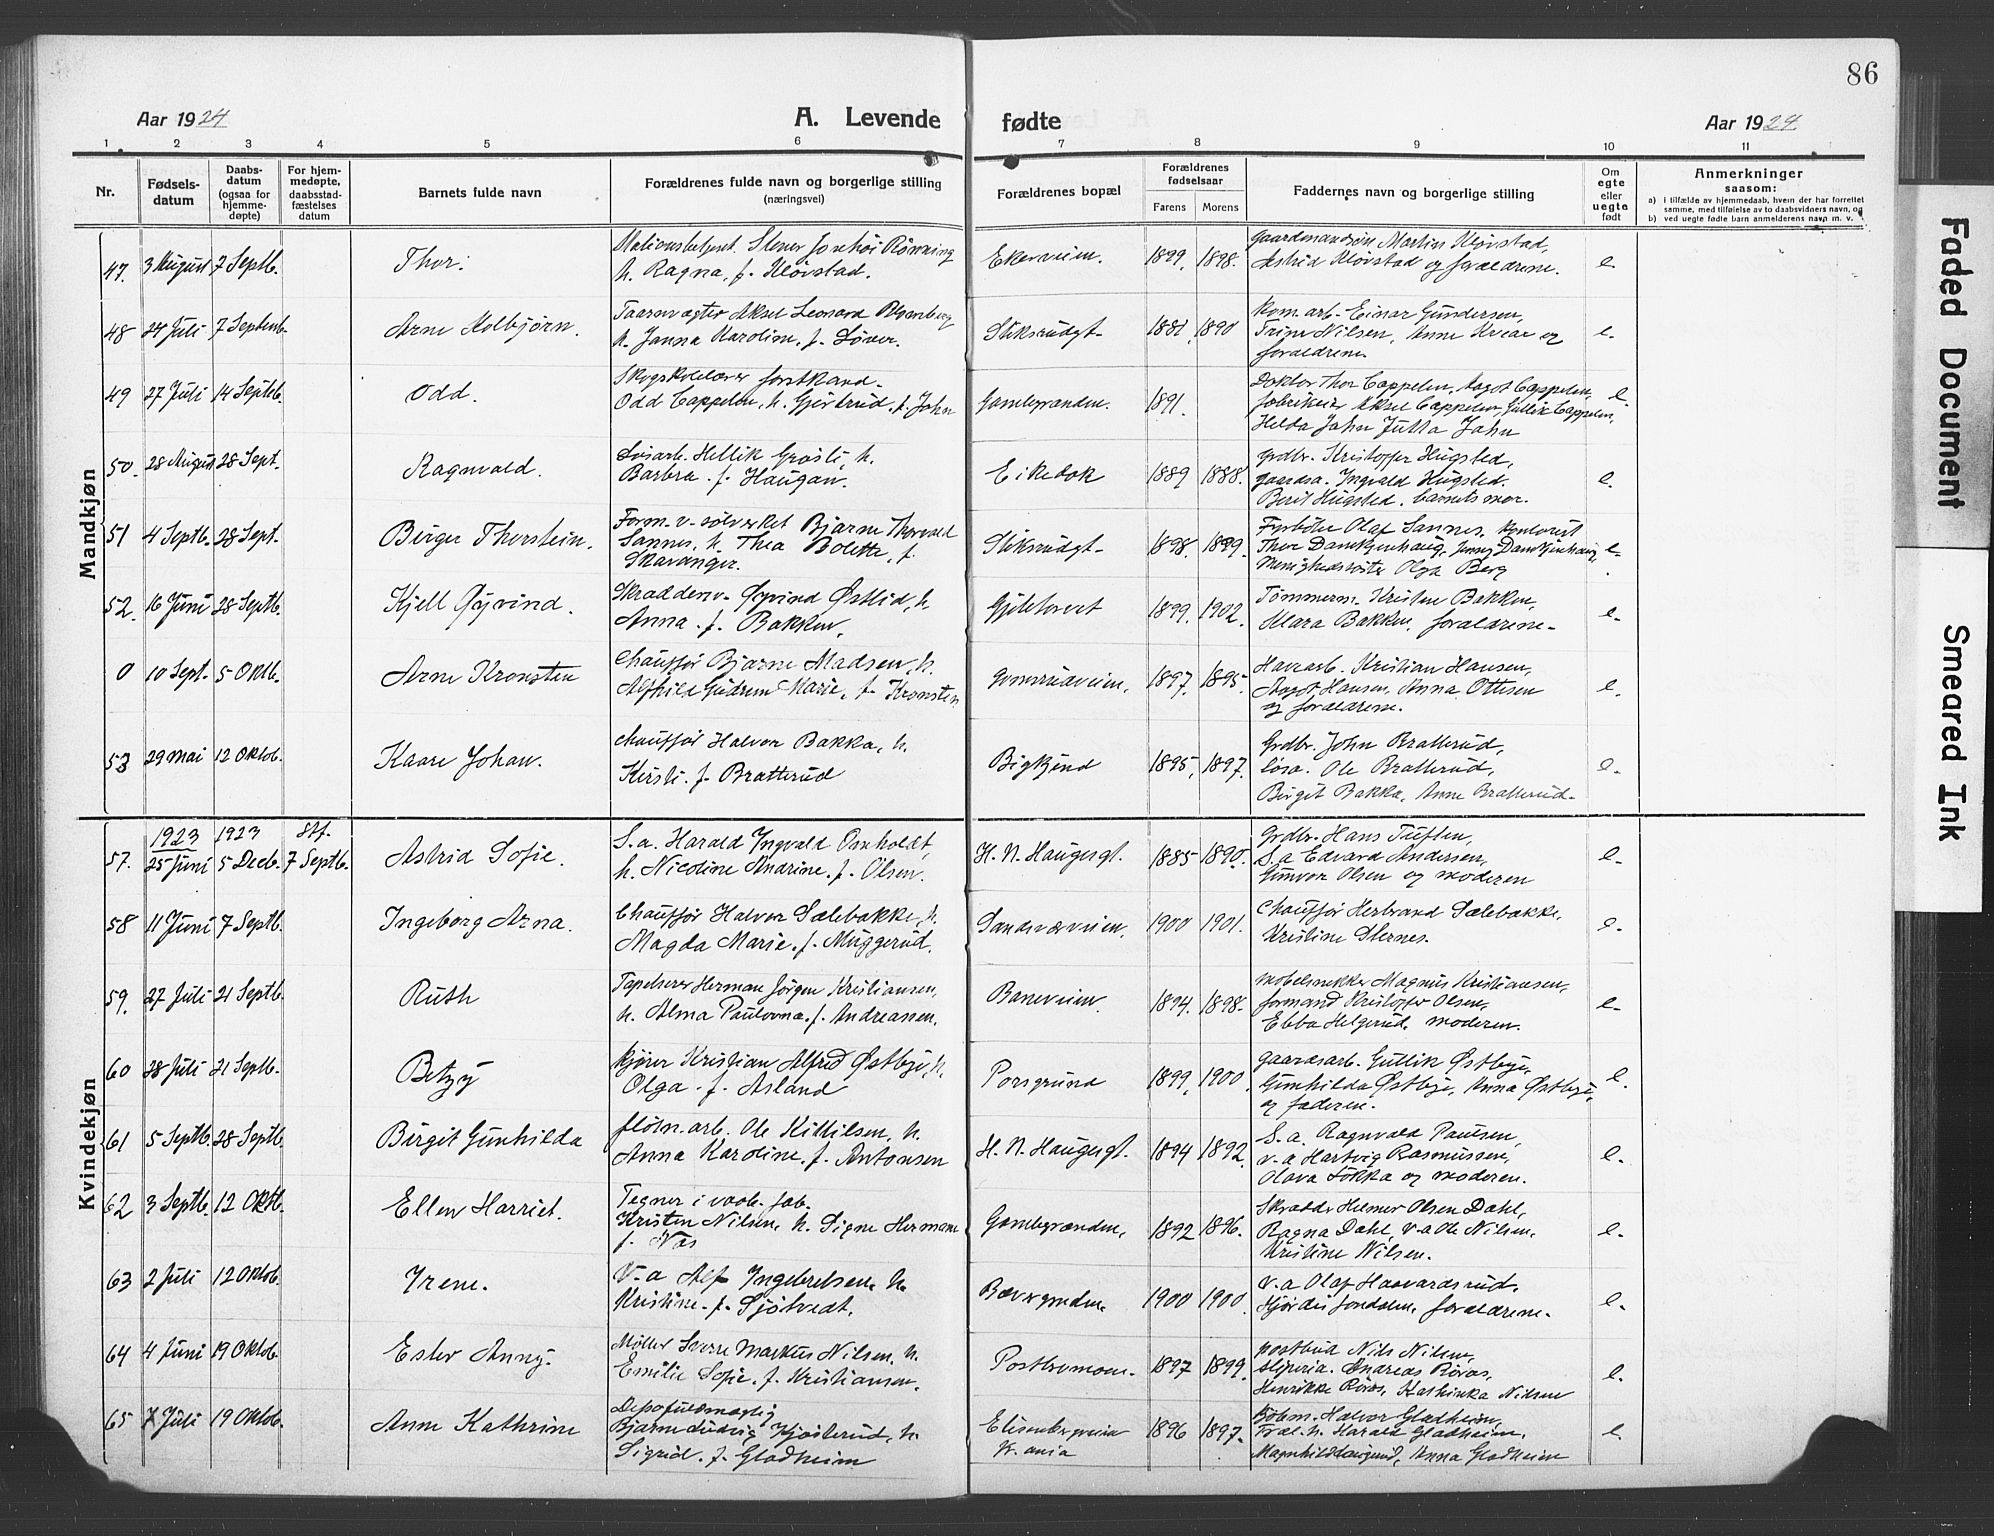 86
Aar 1924
A. Levende
fødte
Aar 1924
1 2 3 4 5 6 7 8 9 10 11
Nr.
Fødsels-
datum
Daabs-
datum
(ogsaa for
hjemme-
døpte)
For hjem-
medøpte,
daabsstad-
fæstelses
datum
Barnets fulde navn
Forældrenes fulde navn og borgerlige stilling
(næringsvei)
Forældrenes bopæl
Forældrenes
fødselsaar
Farens Morens
Faddernes navn og borgerlige stilling
Om
egte
eller
uegte
født
Anmerkninger
saasom:
a) i tilfælde av hjemmedaab, hvem der har forrettet
samme, med tilføielse av to daabsvidners navn, og
b) ved uegte fødte barn anmelderens navn m. v.
Mandkjøn
47. 3 August 7 Septb. Thor.
Rønning
h. Ragna, f. Kløvstad.
Ekerveien. 1899. 1898.
Gaardmandsøn Martin Kløvstad,
Astrid Kløvstad og forældrene. e.
48 24 Juli 7 Septemb. Arne Kolbjørn.
Aksel Leonard
h. Janna Karoline, f. Løver.
Stiksrudgt. 1881. 1890
Kom. arb. Einar Gundersen,
Trine Nilsen, Anne Kvear og
forældrene e.
49 27 Juli 14 Septb. Odd.
Skogskolelærer forstkand.
Odd Cappelen, h. Gjertrud, f. Jahn
Gamlegrænden. 1891.
Doktor Thor Cappelen, Aagot Cappelen,
fabrikeier Aksel Cappelen, Gullik Cappelen,
Helda Jahn Jutta Jahn e.
50. 28 August 28 Sept. Ragnvald.
Løsarb. Hellik Grøsli, h.
Barbra. f. Haugan.
Eikedok 1889 1888.
Grdbr. Kristoffer Hugsted,
gaardsa. Ingvald Hugsted.
Berit Hugsted. barnets mor. e.
51 4 Septb. 28 Sept. Birger Thorstein.
Form. v. sølvverket Bjarne Thorvald
Sannes, h. Thea Bolette, f.
Skavanger.
Stiksrudgt. 1898. 1899.
Fyrbøter Olaf Sannes, kontorist
Thor Danskjenhaug, Jenny Danskjenhaug,
Menighedssøster Olga Berg e.
52. 16 Juni 28 Septb. Kjell Øyvind.
Skrædderv. Øyvind Østlid, h.
Anna. f. Bakken.
Gjeletorvet 1899. 1902.
Tømmerm. Kristen Bakken,
Mara Bakken, forældrene. e.
0 10 Sept. 5 Oktb. Arne Kronsten
Chauffør Bjarne Madsen, h.
Alfhild Gudrun Marie, f. Kronsten
Gomsrudveien. 1897. 1895.
Havearb. Kristian Hansen,
Aagot Hansen, Anna Ottesen
og forældrene. e.
53 29 mai 12 Oktob. Kaare Johan.
Chauffør Halvor Bakka, h.
Kirsti. f. Bratterud
Bigkjend 1895. 1897.
Grdbr. John Bratterud,
løsa. Ole Bratterud,
Birgit Bakka, Anne Bratterud. e.
Kvindekjøn
1923 1923 Stf.
57. 25 Juni 5 Decb. 7 Septb. Astrid Sofie.
S. a. Harald Ingvald Omholdt,
h. Nicoline Andrine. f. Olsen.
H. N. Haugesgt. 1885 1890.
Grdbr. Hans Tuften,
S. a Edvard Andersen,
Gunvor Olsen og moderen e.
58 11 Juni 7 Septb. Ingeborg Arna.
Chauffør Halvor Sælebakke, h.
Magda Marie. f. Muggerud.
Sandsværveien. 1900 1901.
Chauffør Herbrand Sælebakke,
Kristine Sternes. e.
59. 27 Juli 21 Septb. Ruth
Tapetserer Herman Jørgen Kristiansen,
h. Alma Paulovna. f. Andreassen.
Baneveien 1894. 1898.
Møbelsnekker Magnus Kristiansen,
formand Kristoffer Olsen,
Ebba Helgerud, moderen. e.
60 28 Juli 21 Septb. Betzy
Kjører Kristian Alfred Østbye, h.
Olga. f. Asland
Porsgrund 1899. 1900.
Gaardsarb. Gullik Østbye,
Gunhilda Østbye, Anna Østbye,
og faderen. e.
61 5 Septb. 28 Septb. Birgit Gunhilda
fløtn. arb. Ole Kittilsen, h.
Anna Karoline. f. Antonsen
H. N. Haugesgt. 1894 1892.
S. a. Ragnvald Paulsen,
v. a Hartvig Rasmussen,
Olava Løkka og moderen. e.
62 3 Septb. 12 Oktb. Ellen Harriet.
Tegner i vaab. fab.
Kristen Nilsen, h. Signe Hermane
f. Næs
Gamlegrænden. 1892 1896.
Skrædder Helmer Olsen Dahl,
Ragna Dahl, v. a Ole Nilsen,
Kristine Nilsen. e.
63 2 Juli 12 Oktob. Irene.
V. a Alf Ingebretsen, h.
Kristine. f. Sjøtvedt.
Bævergrænden. 1900 1900.
v. a Olaf Haavardsrud,
Hjørdis Jondalen, forældrene. e.
64 4 Juni 19 Oktob. Ester Anny.
Møller Sverre Markus Nilsen, h.
Emilie Sofie. f. Kristiansen.
Postbromoen. 1897 1899.
Postbud Nils Nilsen,
Andreas Røraas,
Henrikke Røraas, Kathinka Nilsen e.
65 7 Juli 19 Oktob. Anne Kathrine
Depofuldmægtig
Bjarne Ludvig Kjøsterud, h.
Sigrid. f. Gladheim
Elisenbergveien
Kr.ania 1896 1897.
Kjøbm. Halvor Gladheim,
Harald Gladheim,
Anna Gladheim e.
Faded Document
Smeared Ink